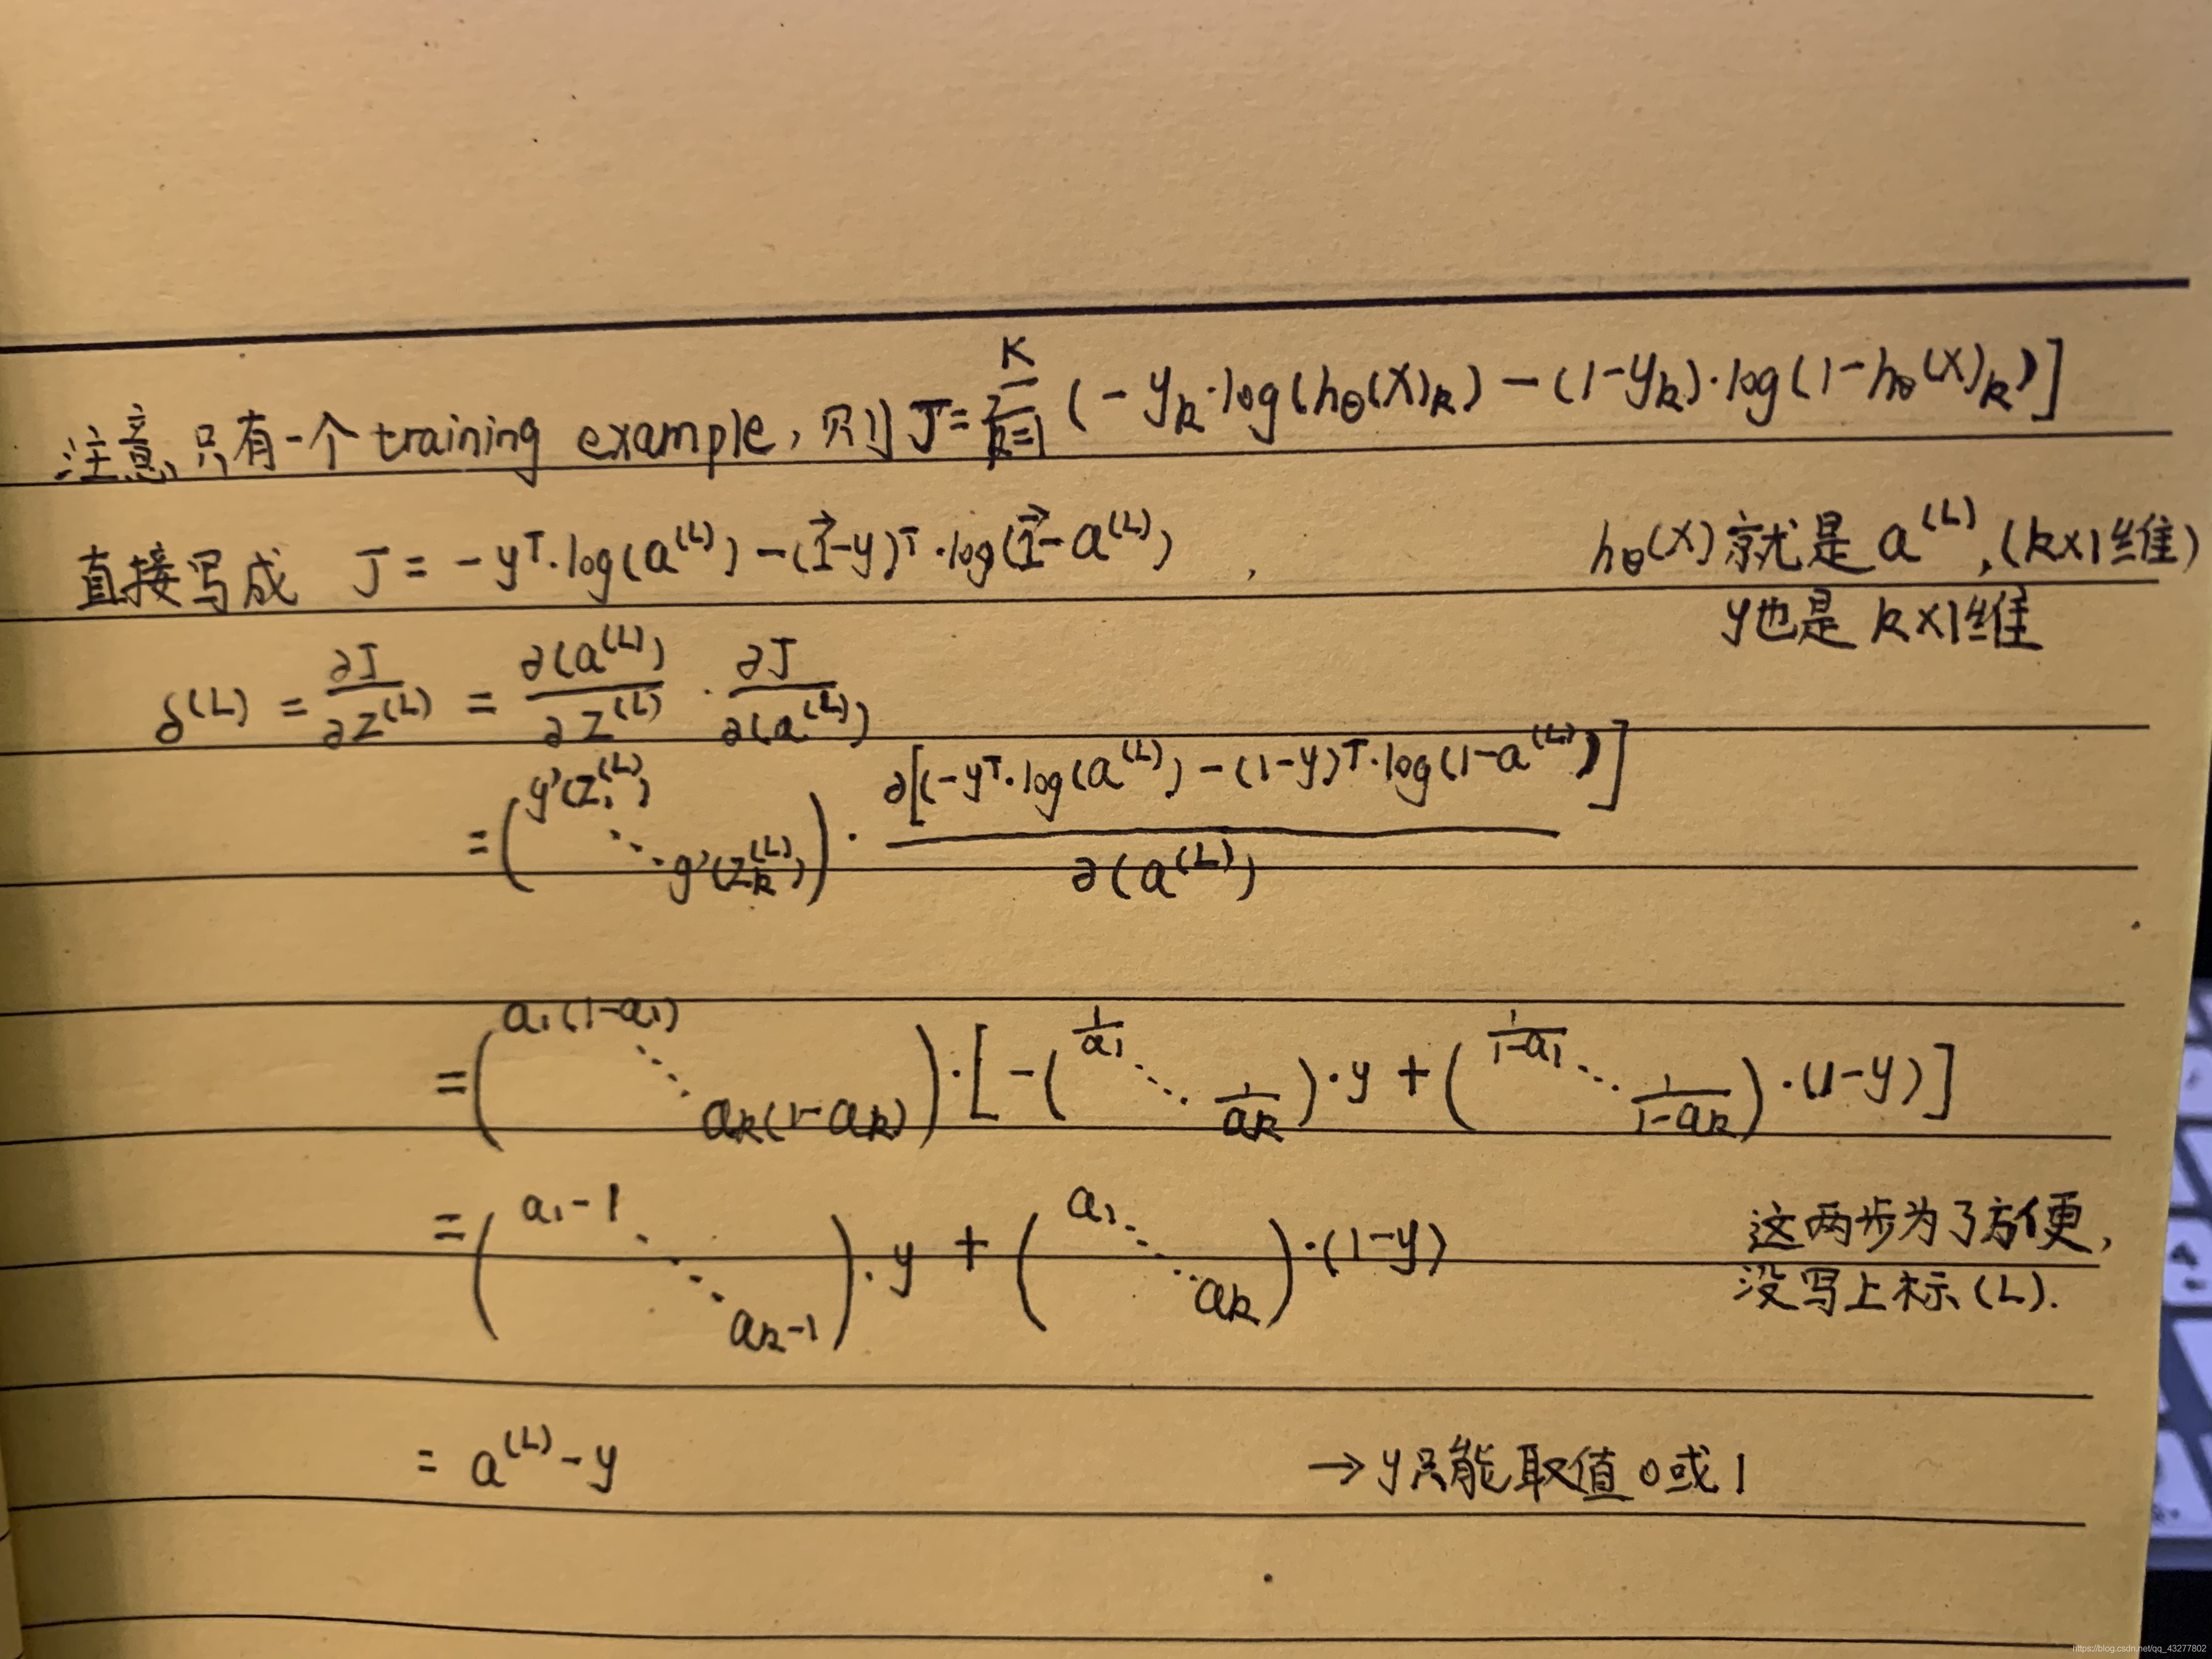 注意,只有一个 training example, 则 J = \sum_{k=1}^{K} (-y_k·log(h_θ(x)_k) - (1-y_k)·log(1-h_θ(x)_k)]
直接写成 J = -y^T·log(a^{(L)}) - (\vec{1}-y)^T·log(\vec{1}-a^{(L)}) , h_θ(x) 就是 a^{(L)}, (k×1维)
y也是 k×1维
δ^{(L)} = \frac{∂J}{∂z^{(L)}} = \frac{∂(a^{(L)})}{∂z^{(L)}} · \frac{∂J}{∂(a^{(L)})}
= \begin{pmatrix} g'(z_1^{(L)}) & & \\ & ⋱ & \\ & & g'(z_k^{(L)}) \end{pmatrix} · \frac{∂[(-y^T·log(a^{(L)}) - (1-y)^T·log(1-a^{(L)})]}{∂(a^{(L)})}
= \begin{pmatrix} a_1(1-a_1) & & \\ & ⋱ & \\ & & a_k(1-a_k) \end{pmatrix} · [-\begin{pmatrix} \frac{1}{a_1} & & \\ & ⋱ & \\ & & \frac{1}{a_k} \end{pmatrix}·y + \begin{pmatrix} \frac{1}{1-a_1} & & \\ & ⋱ & \\ & & \frac{1}{1-a_k} \end{pmatrix}·(1-y)]
= \begin{pmatrix} a_1-1 & & \\ & ⋱ & \\ & & a_k-1 \end{pmatrix}·y + \begin{pmatrix} a_1 & & \\ & ⋱ & \\ & & a_k \end{pmatrix}·(1-y) 这两步为了方便,
没写上标(L).
= a^{(L)} - y → y只能取值0或1
https://blog.csdn.net/qq_43277802